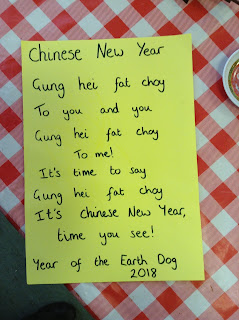 Chinese New Year
Gung hei fat choy
To you and you
Gung hei fat choy
To me!
It's time to say
Gung hei fat choy
It's Chinese New Year,
time you see!
Year of the Earth Dog
2018